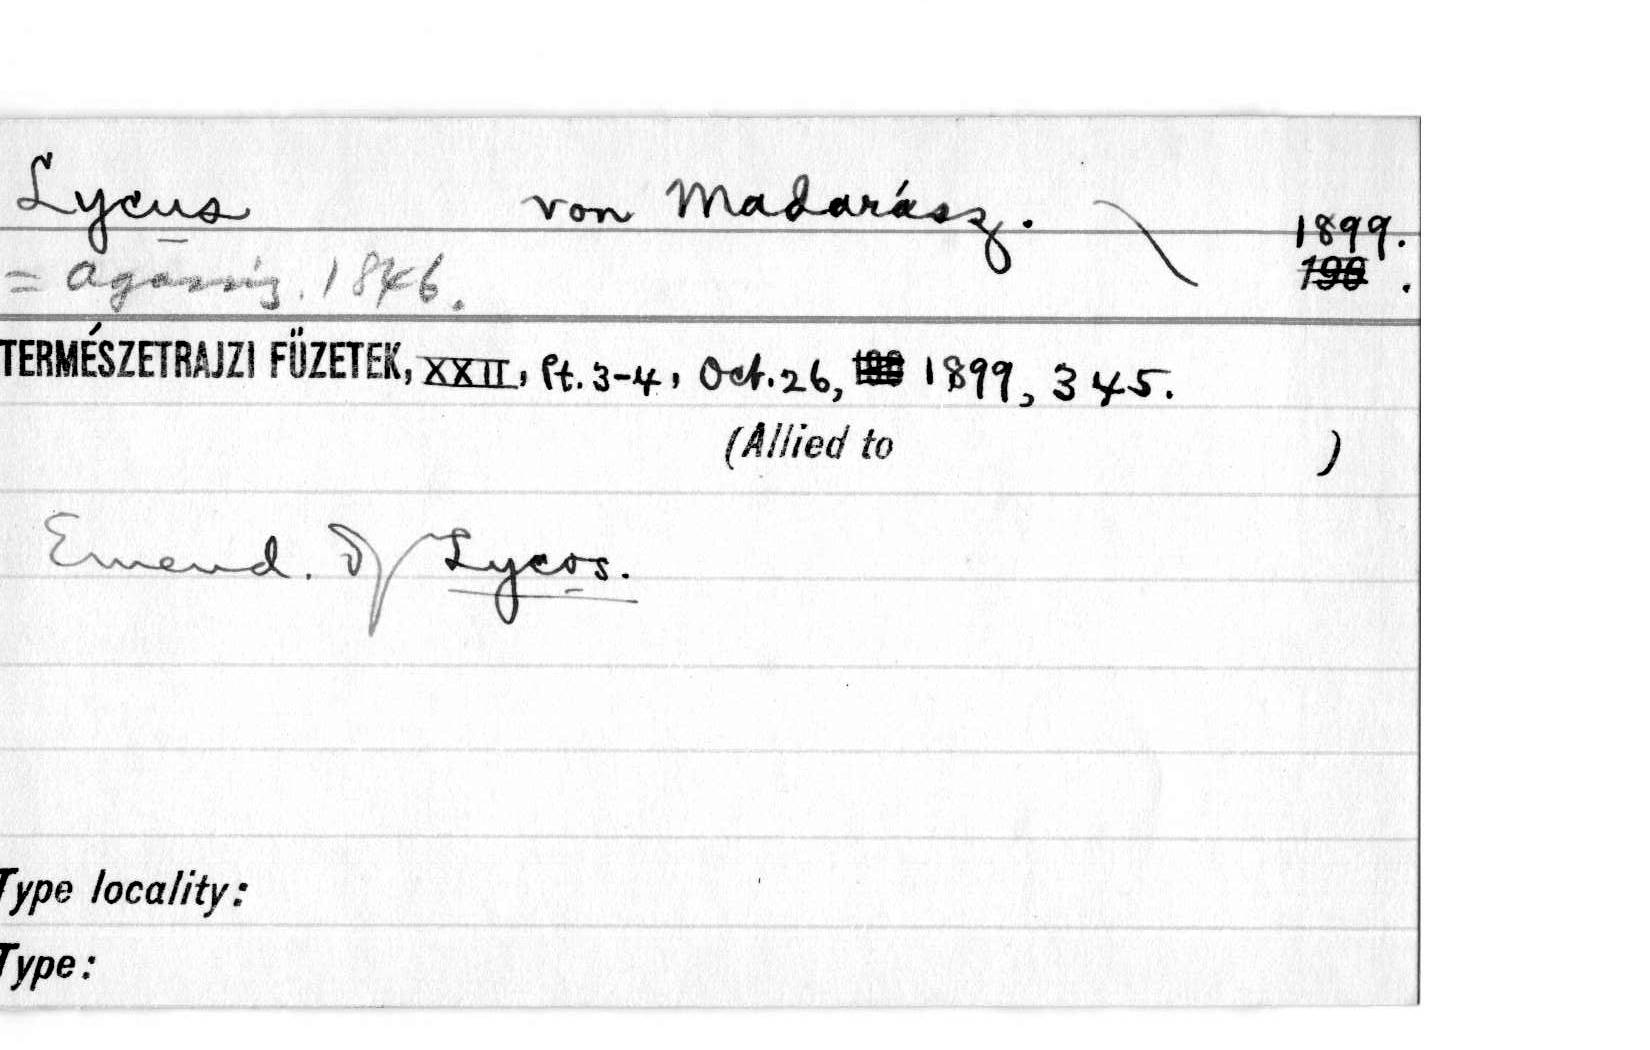 Lycus von Madarász. 1899.
= Agassiz. 1846. 190 .
TERMÉSZETRAJZI FÜZETEK, XXII, Pt. 3-4, Oct. 26, 1899, 345.
(Allied to )
Emend. of Lycos.
Type locality:
Type: